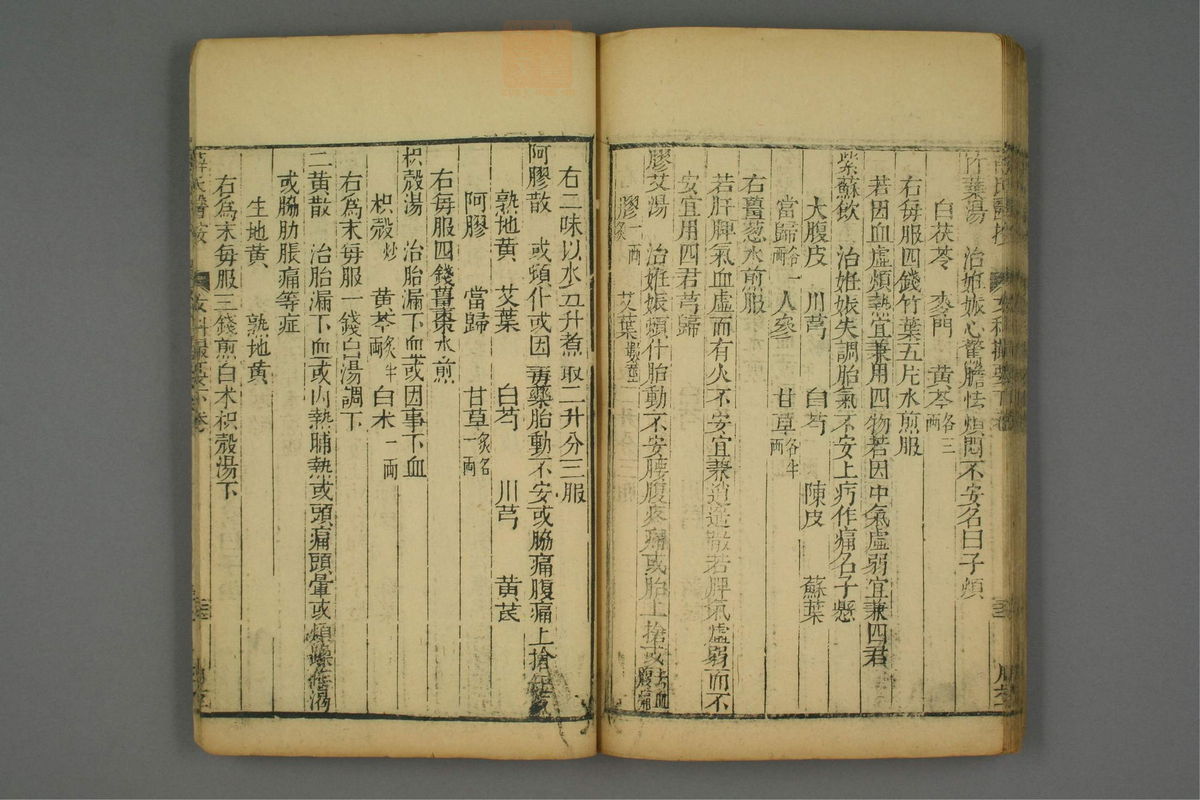 竹葉湯 治姙娠心驚膽怯煩悶不安名曰子煩
白茯苓 麥門 黃芩各三兩
右每服四錢竹葉五片水煎服
若因血虛煩熱宜兼用四物若因中氣虛弱宜兼四君
紫蘇飲 治姙娠失調胎氣不安上疞作痛名子懸
大腹皮 川芎 白芍 陳皮 蘇葉
當歸各一兩 人參 甘草各半兩
右薑葱水煎服
若肝脾氣血虛而有火不安宜兼逍遙散若脾氣虛弱而不
安宜用四君芎歸
膠艾湯 治姙娠頓仆胎動不安腰腹疼痛或胎上搶或去血腹痛
膠一兩炙 艾葉
右二味以水五升煮取二升分三服
阿膠散 或頓仆或因毒藥胎動不安或脇痛腹痛上搶
熟地黃 艾葉 白芍 川芎 黃芪
阿膠 當歸 甘草炙各一兩
右每服四錢薑棗水煎
枳殼湯 治胎漏下血或因事下血
枳殼炒 黃芩炙半兩 白术一兩
右為末每服一錢白湯調下
二黃散 治胎漏下血或內熱晡熱或頭痛頭暈或煩躁作渴
或脇肋脹痛等症
生地黃 熟地黃
右為末每服三錢煎白术枳殼湯下
薛氏醫按 女科撮要下卷